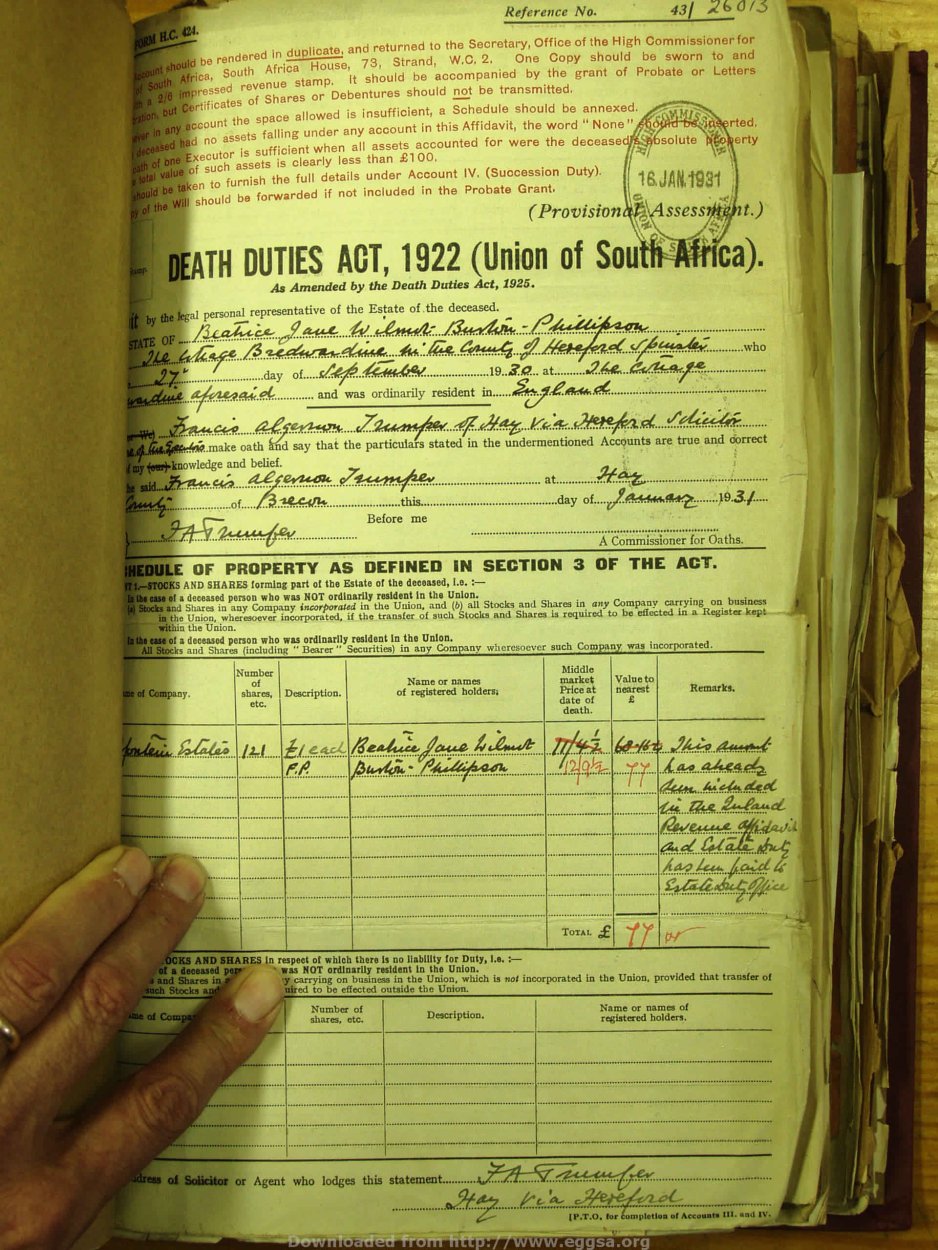 Reference No. 43/ 26013
FORM H.C. 424.
should be rendered in duplicate, and returned to the Secretary, Office of the High Commissioner for
of South Africa, South Africa House, 73, Strand, W.C. 2. One Copy should be sworn to and
a 2/6 impressed revenue stamp. It should be accompanied by the grant of Probate or Letters
but Certificates of Shares or Debentures should not be transmitted.
in any account the space allowed is insufficient, a Schedule should be annexed.
deceased had no assets falling under any account in this Affidavit, the word "None" should be inserted.
of one Executor is sufficient when all assets accounted for were the deceased's absolute property
total value of such assets is clearly less than £100.
should be taken to furnish the full details under Account IV. (Succession Duty).
of the Will should be forwarded if not included in the Probate Grant.
HIGH COMMISSIONER
16.JAN.1931
UNION OF SOUTH AFRICA
(Provisional Assessment.)
DEATH DUTIES ACT, 1922 (Union of South Africa).
As Amended by the Death Duties Act, 1925.
by the legal personal representative of the Estate of the deceased.
STATE OF Beatrice Jane Wilmot Burton-Phillipson
The Cottage Bredwardine in the County of Hereford Spinster who
27th day of September 1930 at The Cottage
aforesaid and was ordinarily resident in England
Francis Algernon Trumper of Hay via Hereford Solicitor
make oath and say that the particulars stated in the undermentioned Accounts are true and correct
my (our) knowledge and belief.
said Francis Algernon Trumper at Hay
County of Brecon this day of January 1931
F A Trumper Before me
A Commissioner for Oaths.
HEDULE OF PROPERTY AS DEFINED IN SECTION 3 OF THE ACT.
1.—STOCKS AND SHARES forming part of the Estate of the deceased, i.e. :—
In the case of a deceased person who was NOT ordinarily resident in the Union.
(a) Stocks and Shares in any Company incorporated in the Union, and (b) all Stocks and Shares in any Company carrying on business
in the Union, wheresoever incorporated, if the transfer of such Stocks and Shares is required to be effected in a Register kept
within the Union.
In the case of a deceased person who was ordinarily resident in the Union.
All Stocks and Shares (including "Bearer" Securities) in any Company wheresoever such Company was incorporated.
of Company.
Number of shares, etc.
Description.
Name or names of registered holders;
Middle market Price at date of death.
Value to nearest £
Remarks.
Estates 121 £1 each Beatrice Jane Wilmot 11/4½ This amount
F.P. Burton-Phillipson 12/9½ 77 has already
been included
in the Inland
Revenue affidavit
and Estate Duty
has been paid to
Estate Duty Office
TOTAL £ 77
OCKS AND SHARES in respect of which there is no liability for Duty, i.e. :—
of a deceased was NOT ordinarily resident in the Union.
and Shares in carrying on business in the Union, which is not incorporated in the Union, provided that transfer of
such Stocks and to be effected outside the Union.
Number of shares, etc.
Description.
Name or names of registered holders.
of Solicitor or Agent who lodges this statement F A Trumper
Hay via Hereford
[P.T.O. for completion of Accounts III. and IV.
Downloaded from http://www.eggsa.org